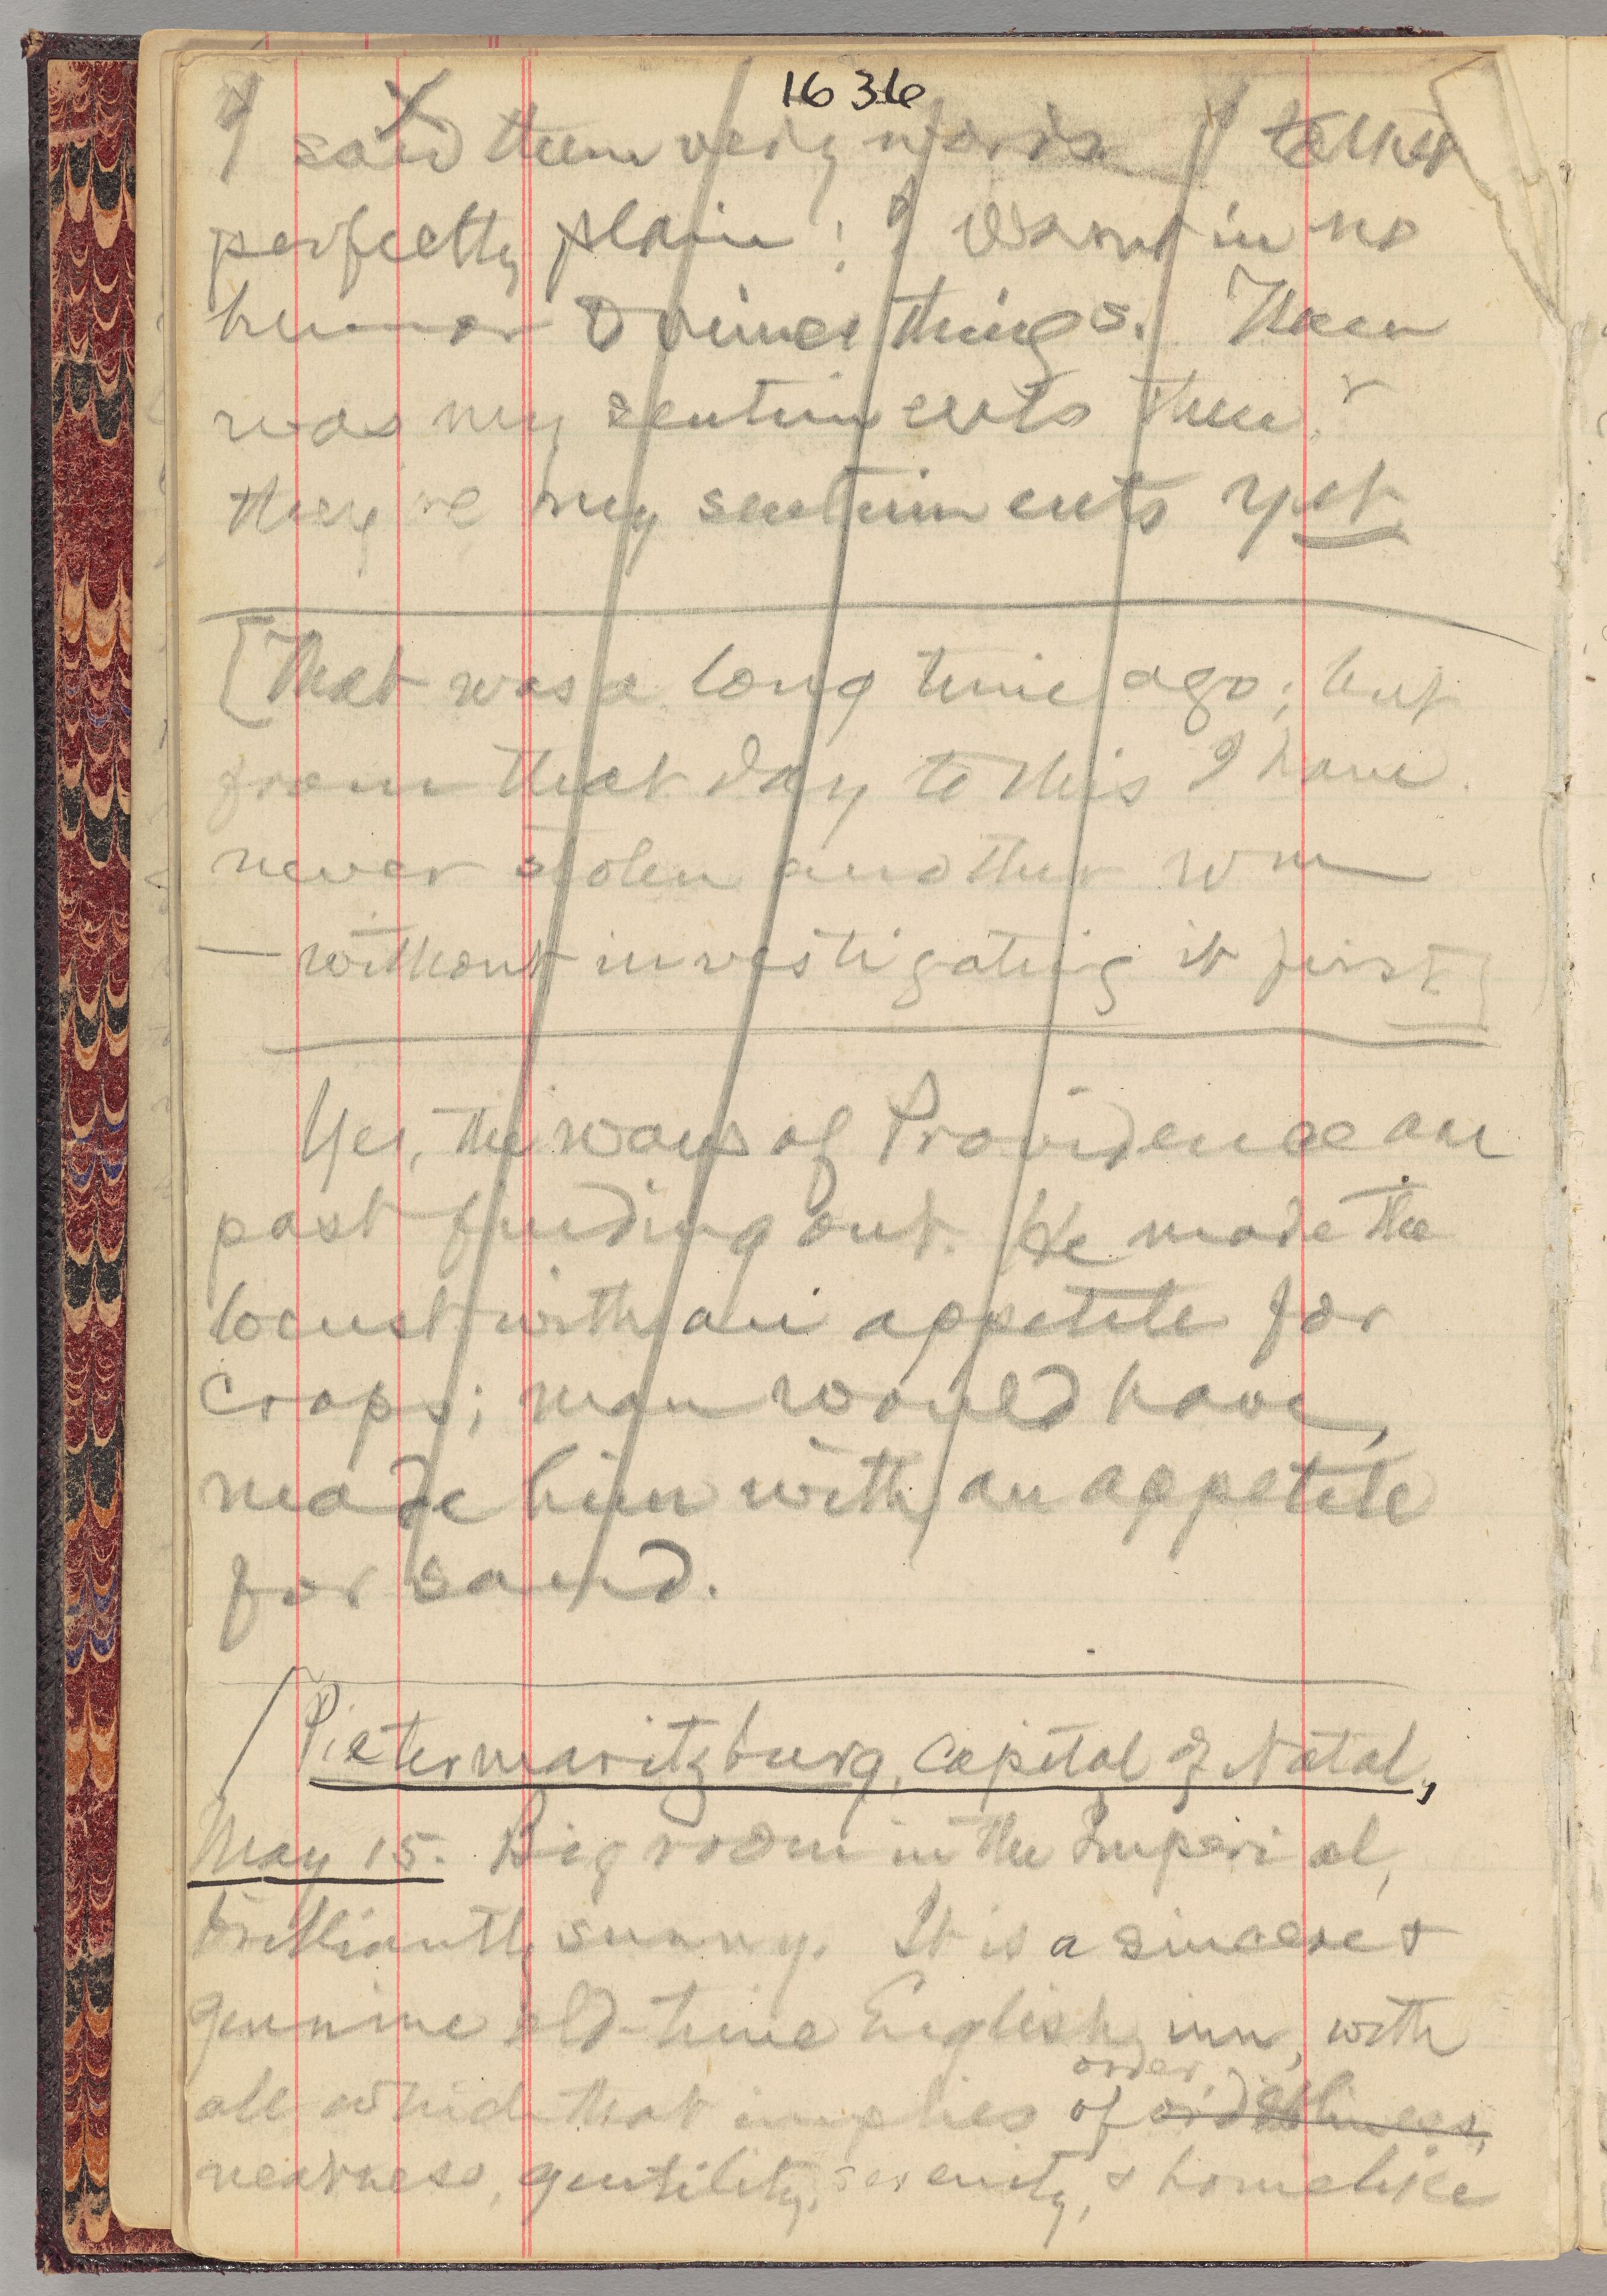 1636
I said them very words. I talked
perfectly plain; I warnt in no
humor to mince things. Them
was my sentiments then, &
they're my sentiments yet.
[That was a long time ago; but
from that day to this I have
never stolen another wm
— without investigating it first]
Yes, the ways of Providence are
past finding out. He made the
locust with an appetite for
crops; man would have
made him with an appetite
for sand.
Pietermaritzburg, Capital of Natal,
May 15. Big room in the Imperial,
brilliantly sunny. It is a sincere &
genuine old-time English inn, with
order,
all which that implies of orderliness,
neatness, gentility, serenity, & homelike